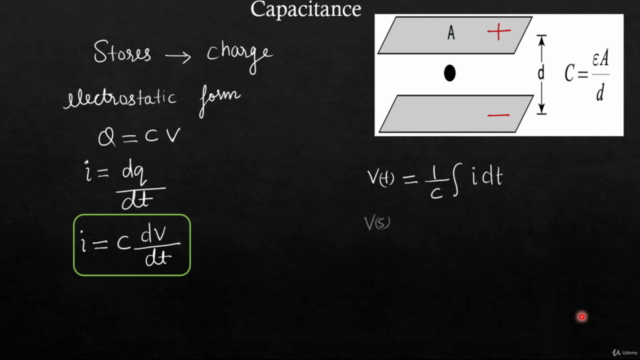 Capacitance
Stores → charge
electrostatic form
Q = C V
i = dq/dt
i = C dv/dt
A +
d
C = εA/d
−
V(t) = 1/C ∫ i dt
V(s)
Udemy